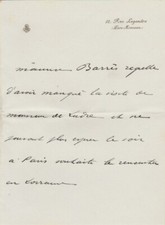 Maurice Barrès regrette
d'avoir manqué la visite de
monsieur de                 et ne
pouvant plus                le voir
à Paris souhaite de rencontrer
en Lorraine